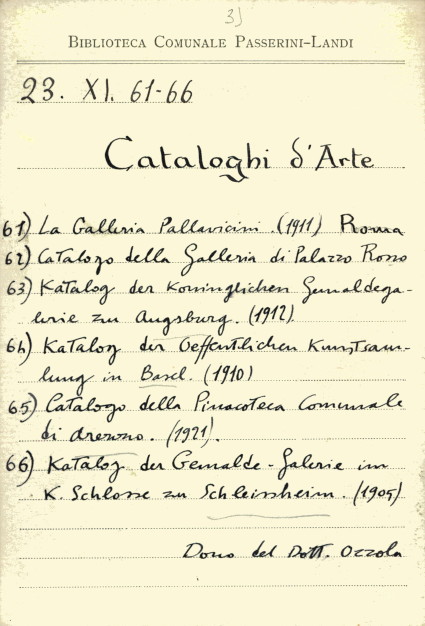 3)
BIBLIOTECA COMUNALE PASSERINI-LANDI
23. XI. 61-66
Cataloghi d'Arte
61) La Galleria Pallavicini. (1911) Roma
62) Catalogo della Galleria di Palazzo Rosso
63) Katalog der Koninglichen Gemaldega-
lerie zu Augsburg. (1912).
64) Katalog der Oeffentlichen Kunstsam-
lung in Basel. (1910)
65) Catalogo della Pinacoteca Comunale
di Arezzo. (1921).
66) Katalog der Gemalde-Galerie im
K. Schlosse zu Schleissheim. (1905)
Dono del Dott. Ozzola